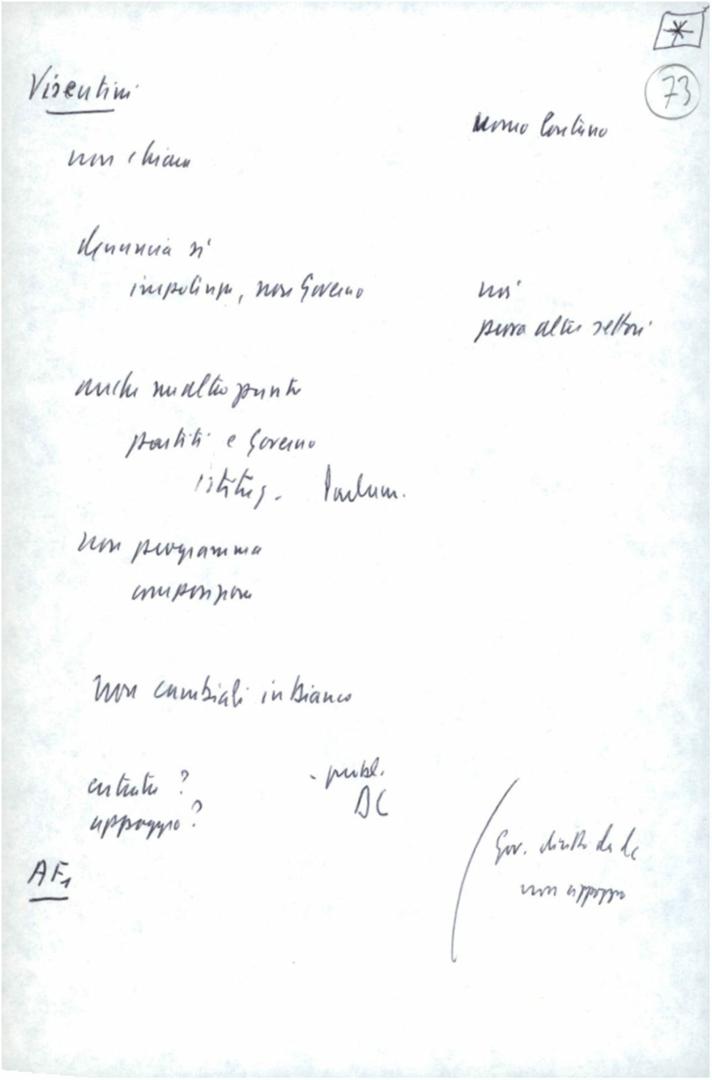 *
73
Visentini
uomo lontano
non chiaro
denuncia sì
impotenza, non Governo
noi
altri settori
anche su altro punto
partiti e Governo
istituz. Parlam.
non programma
composizione
non cambiali in bianco
entrata ?
appoggio ?
- probl.
DC
Gov. diretto da dc
non appoggio
AF1